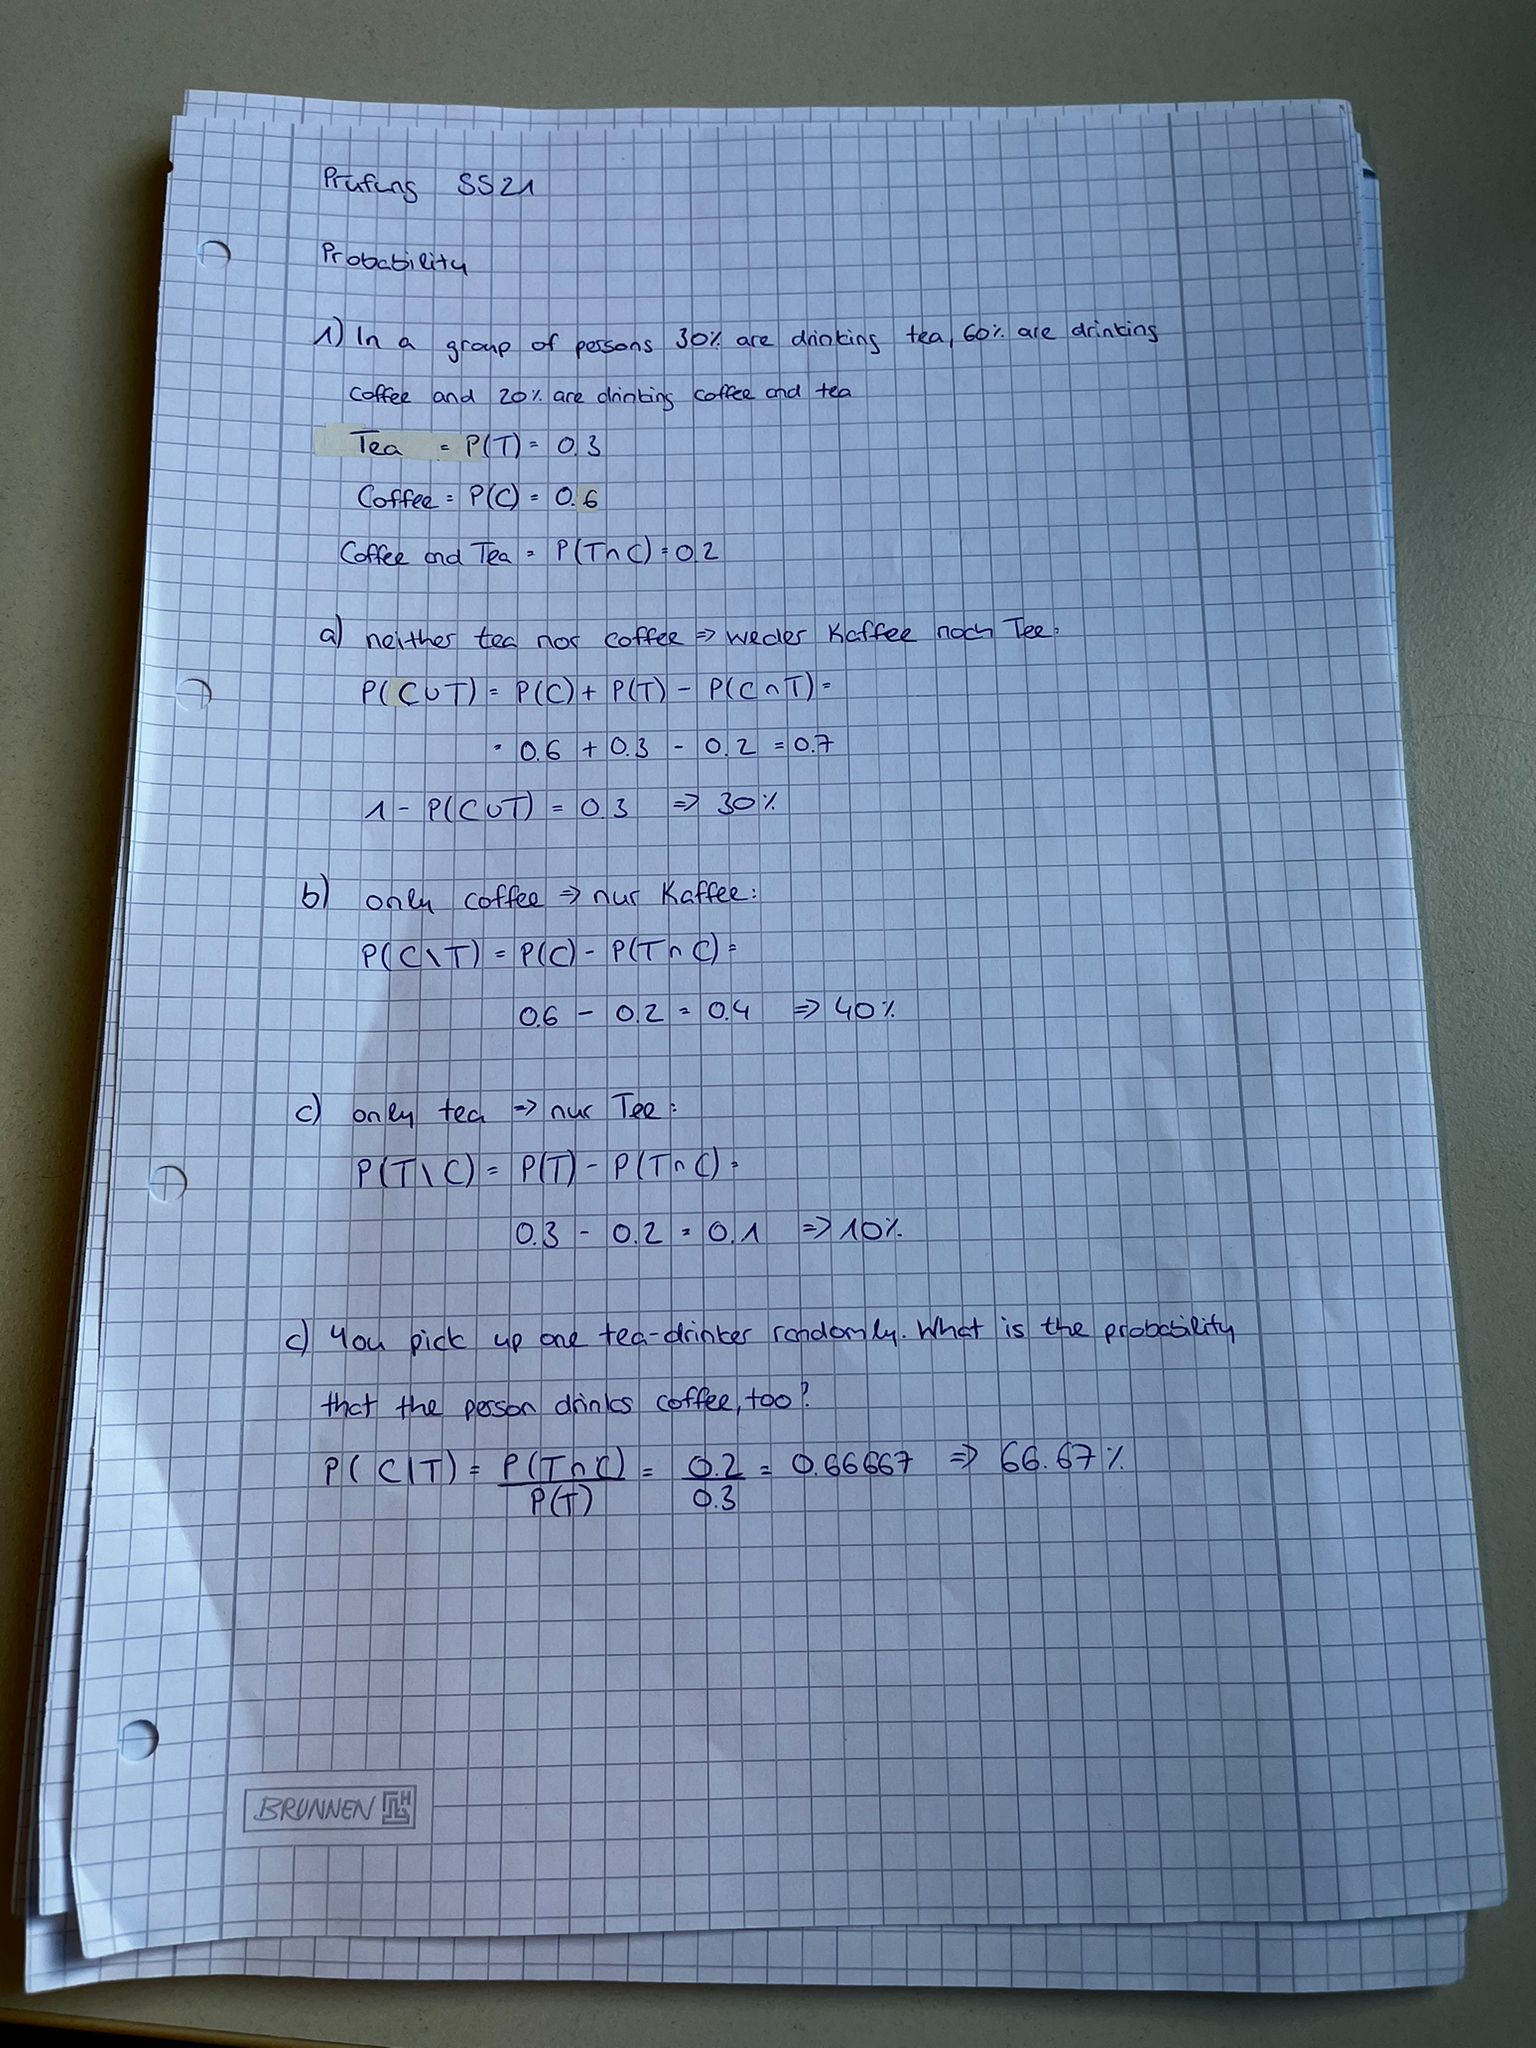 Prüfung SS21
Probability
1) In a group of persons 30% are drinking tea, 60% are drinking
coffee and 20% are drinking coffee and tea
Tea = P(T) = 0.3
Coffee = P(C) = 0.6
Coffee and Tea = P(T∩C) = 0.2
a) neither tea nor coffee => weder Kaffee noch Tee:
P(C∪T) = P(C) + P(T) - P(C∩T) =
= 0.6 + 0.3 - 0.2 = 0.7
1 - P(C∪T) = 0.3 => 30%
b) only coffee => nur Kaffee:
P(C\T) = P(C) - P(T∩C) =
0.6 - 0.2 = 0.4 => 40%
c) only tea => nur Tee:
P(T\C) = P(T) - P(T∩C) =
0.3 - 0.2 = 0.1 => 10%
c) You pick up one tea-drinker randomly. What is the probability
that the person drinks coffee, too?
P(C|T) = P(T∩C) / P(T) = 0.2 / 0.3 = 0.66667 => 66.67%
BRUNNEN